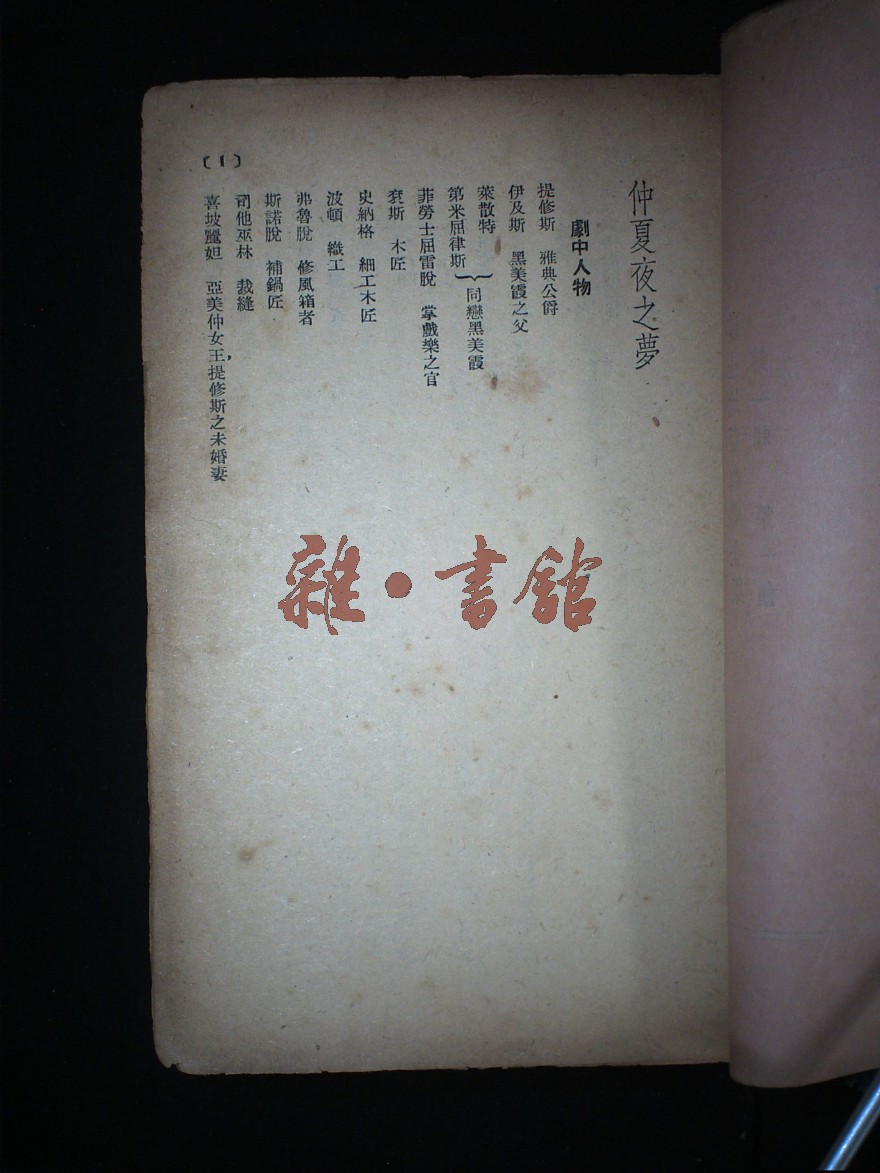 仲夏夜之夢
劇中人物
提修斯　雅典公爵
伊及斯　黑美霞之父
萊散特
第米屈律斯
同戀黑美霞
菲勞士屈雷脫　掌戲樂之官
袞斯　木匠
史納格　細工木匠
波頓　織工
弗魯脫　修風箱者
斯諾脫　補鍋匠
司他巫林　裁縫
喜坡麗妲　亞美仲女王，提修斯之未婚妻
〔1〕
雜·書館